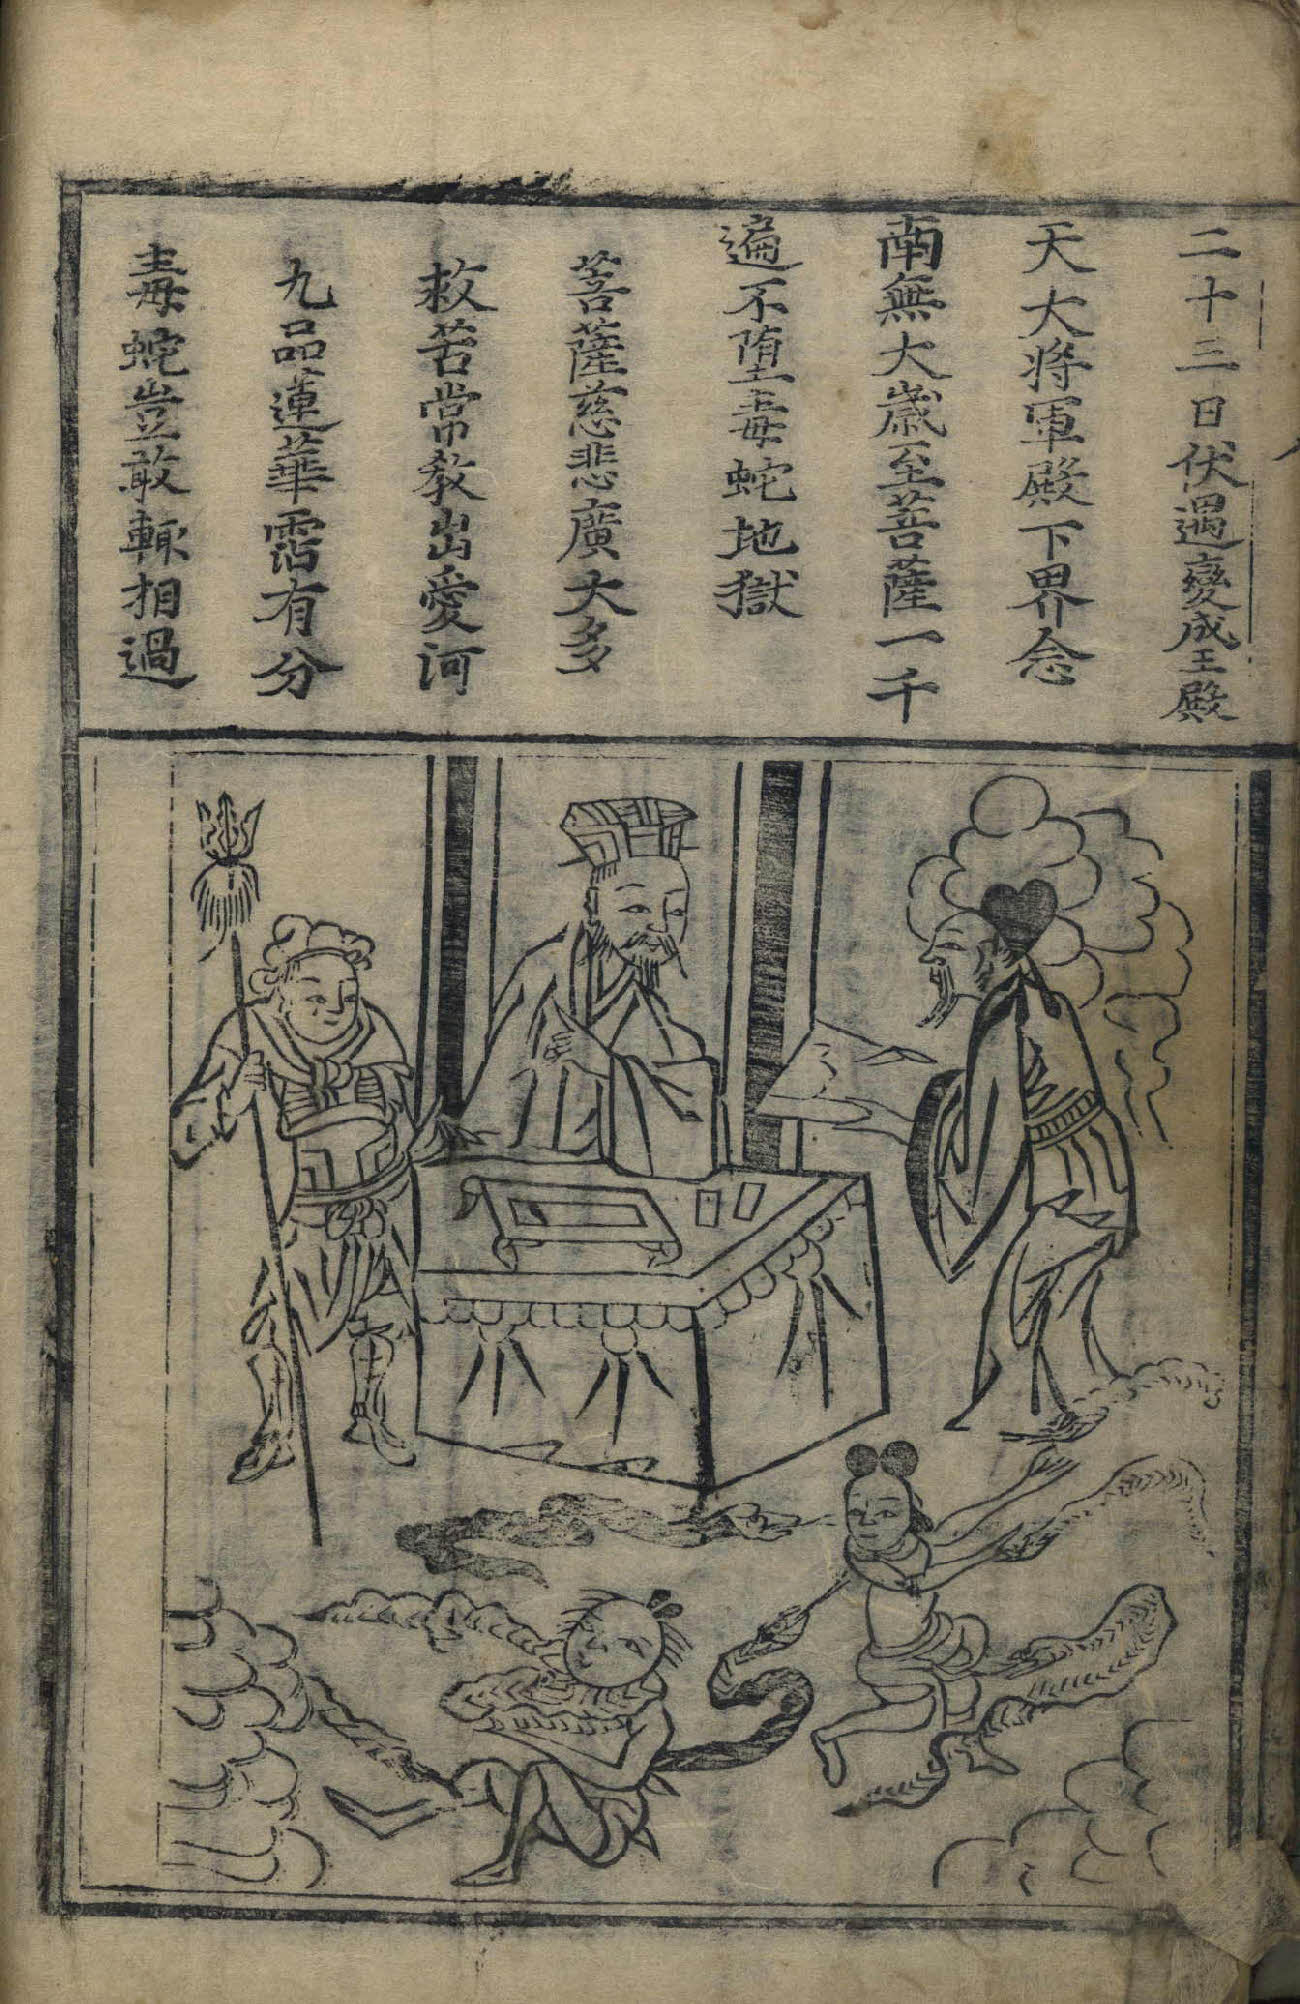 二十三日伏遇變成王殿
天大将軍殿下界念
南無大歳至菩薩一千
遍不堕毒蛇地獄
菩薩慈悲廣大多
救苦常教出愛河
九品蓮華霑有分
毒蛇豈敢輙相過